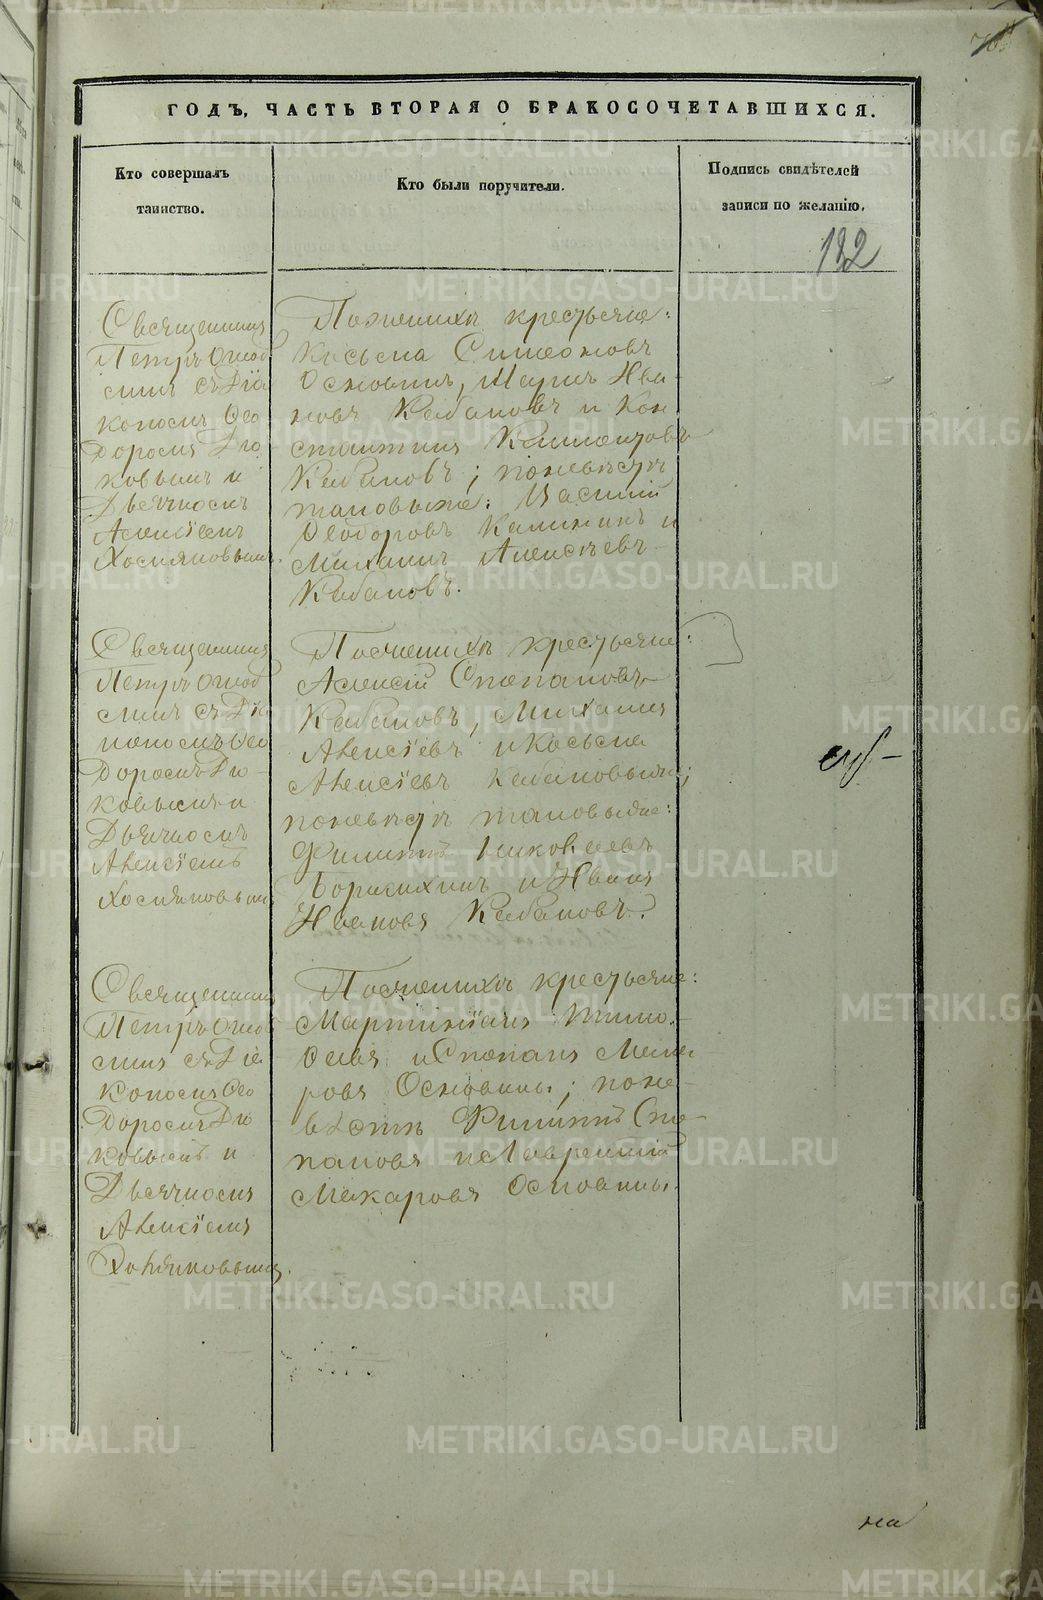 ГОДЪ, ЧАСТЬ ВТОРАЯ О БРАКОСОЧЕТАВШИХСЯ.
Кто совершалъ
таинство.
Кто были поручители.
Подпись свидѣтелей
записи по желанію.
132
Священникъ
Петръ
съ Діа
кономъ Ѳео
доромъ Дю
ковымъ и
Дьячкомъ
Алексіемъ
Хосняновымъ.
По женихѣ крестьяне:
Косьма Симеоновъ
Основинъ, Ива-
новъ Кабановъ и Кон
стантинъ Климентовъ
Кабановъ; по невѣстѣ
таковыеже: Василій
Ѳеодоровъ Калининъ и
Михаилъ Алексѣевъ
Кабановъ.
Священникъ
Петръ
съ Діа
кономъ Ѳео
доромъ Дю
ковымъ и
Дьячкомъ
Алексіемъ
Хосняновымъ
По женихѣ крестьяне:
Алексій Степановъ
Кабановъ, Михаилъ
Алексіевъ и Косьма
Алексіевъ Кабановы;
по невѣстѣ таковыеже:
Филиппъ
и Иванъ
Ивановъ Кабановъ.
Священникъ
Петръ
съ Діа
кономъ Ѳео
доромъ Дю
ковымъ и
Дьячкомъ
Алексіемъ
По женихѣ крестьяне:
Мартиніанъ Тимо-
ѳеевъ и Степанъ Мака
ровъ Основины; по не-
вѣстѣ Филиппъ Сте-
пановъ и Лаврентій
Макаровъ Основины.
на
METRIKI.GASO-URAL.RU